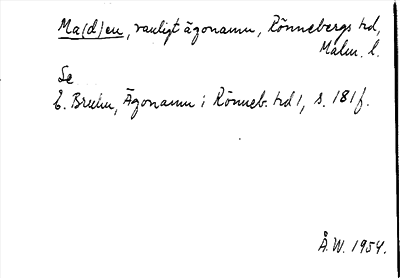 Ma(d)en, vanligt ägonamn, Rönnebergs hd,
Malm. l.
Se
E. Bruhn, Ägonamn i Rönneb. hd 1, s. 181 f.
Å.W. 1954.